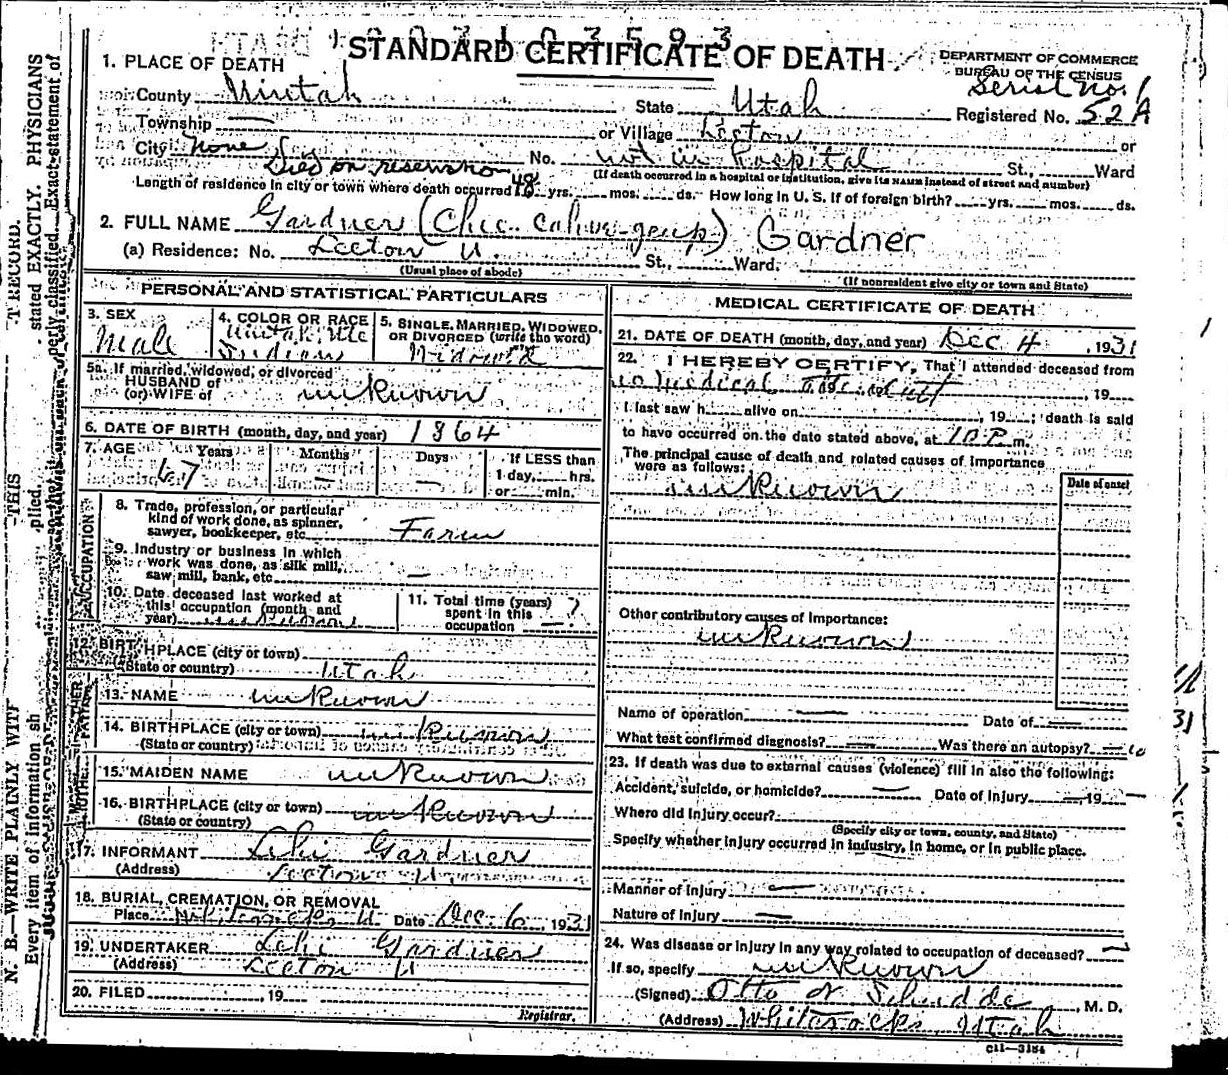 STANDARD CERTIFICATE OF DEATH
DEPARTMENT OF COMMERCE
BUREAU OF THE CENSUS
Serial No. 1
1. PLACE OF DEATH
County Uintah State Utah Registered No. 52A
Township — or Village Leeton or
City None No. not in hospital St., Ward
Died on reservation (If death occurred in a hospital or institution, give its NAME instead of street and number)
Length of residence in city or town where death occurred yrs. mos. ds. How long in U. S. if of foreign birth? yrs. mos. ds.
2. FULL NAME Gardner Gardner
(a) Residence: No. Leeton U. St., Ward.
(Usual place of abode) (If nonresident give city or town and State)
PERSONAL AND STATISTICAL PARTICULARS
3. SEX Male
4. COLOR OR RACE Uintah Ute Indian
5. SINGLE, MARRIED, WIDOWED, OR DIVORCED (write the word) Widowed
5a. If married, widowed, or divorced
HUSBAND of
(or) WIFE of unknown
6. DATE OF BIRTH (month, day, and year) 1864
7. AGE Years Months Days If LESS than
67 — — 1 day, hrs.
or min.
8. Trade, profession, or particular
kind of work done, as spinner,
sawyer, bookkeeper, etc. Farm
9. Industry or business in which
work was done, as silk mill,
saw mill, bank, etc. —
10. Date deceased last worked at
this occupation (month and
year) unknown
11. Total time (years)
spent in this
occupation — ?
OCCUPATION
12. BIRTHPLACE (city or town)
(State or country) Utah
FATHER
13. NAME unknown
14. BIRTHPLACE (city or town) unknown
(State or country)
MOTHER
15. MAIDEN NAME unknown
16. BIRTHPLACE (city or town) unknown
(State or country)
17. INFORMANT Lehi Gardner
(Address) Leeton U.
18. BURIAL, CREMATION, OR REMOVAL
Place Whiterocks U Date Dec. 6, 1931
19. UNDERTAKER Lehi Gardner
(Address) Leeton U
20. FILED , 19
Registrar.
MEDICAL CERTIFICATE OF DEATH
21. DATE OF DEATH (month, day, and year) Dec 4 , 1931
22. I HEREBY CERTIFY, That I attended deceased from
no medical , 19
I last saw h alive on , 19 ; death is said
to have occurred on the date stated above, at 10 P m.
The principal cause of death and related causes of importance
were as follows: Date of onset
unknown
Other contributory causes of importance:
unknown
Name of operation — Date of —
What test confirmed diagnosis? — Was there an autopsy? no
23. If death was due to external causes (violence) fill in also the following:
Accident, suicide, or homicide? — Date of injury — 19 —
Where did injury occur?
(Specify city or town, county, and State)
Specify whether injury occurred in industry, in home, or in public place.
Manner of injury —
Nature of injury —
24. Was disease or injury in any way related to occupation of deceased? —
If so, specify unknown
(Signed) Otto N Schudde , M. D.
(Address) Whiterocks, Utah
c11—3184
N. B.—WRITE PLAINLY WITH
—THIS
T RECORD.
Every item of information sh
plied.
stated EXACTLY. PHYSICIANS
perly classified. Exact statement of
31